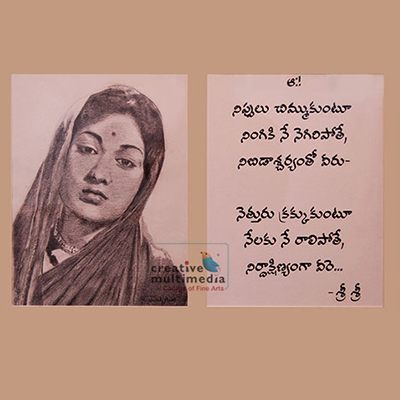 ఆ:!
నిప్పులు చిమ్ముకుంటూ
నింగికి నే నెగిరిపోతే,
నిబిడాశ్చర్యంతో వీరు-
నెత్తురు క్రక్కుకుంటూ
నేలకు నే రాలిపోతే,
నిర్దాక్షిణ్యంగా వీరె...
- శ్రీ శ్రీ
creative
multimedia
College of Fine Arts